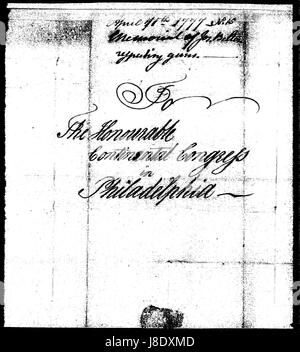 April 11th 1777 No 16
Memorial of Jos. Belton
repeating guns.
To
The Honourable
Continental Congress
in
Philadelphia
alamy
Image ID: J8DXMD
www.alamy.com